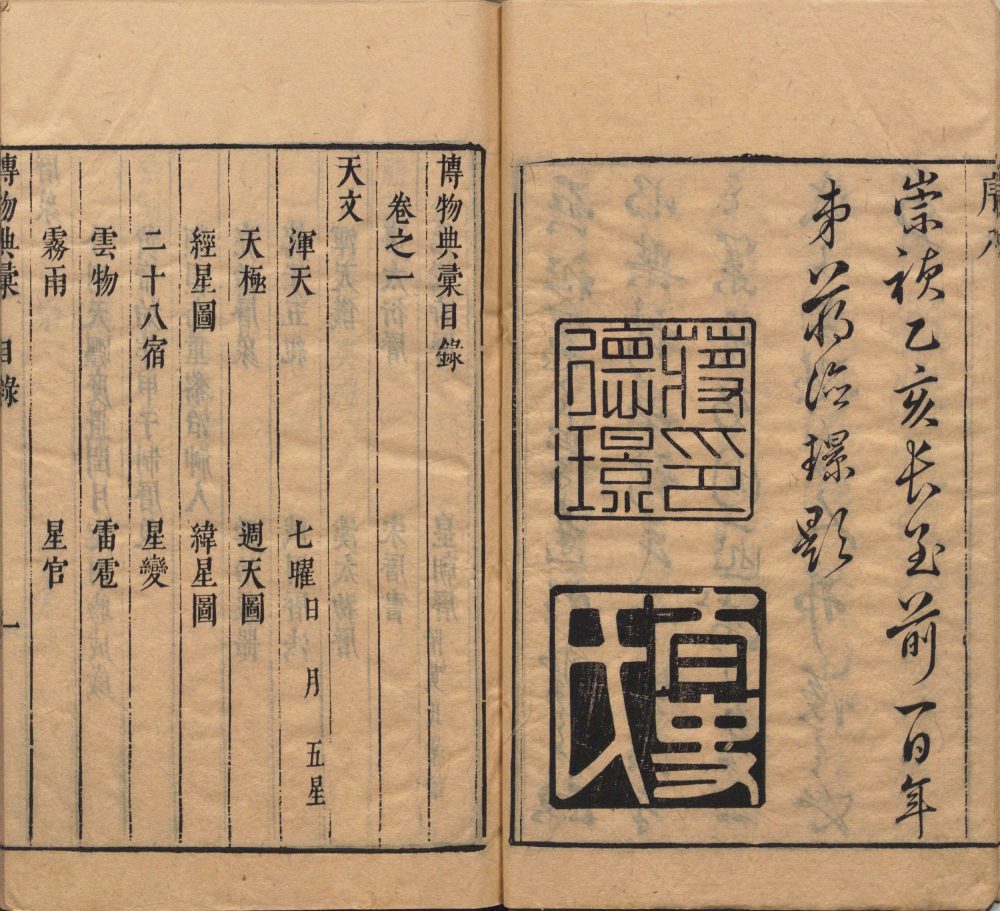 序
崇禎乙亥長至前一日年
弟蔣德璟題
蔣印
德璟
博物典彙目錄
卷之一
天文
渾天 七曜 日 月 五星
天極 週天圖
經星圖 緯星圖
二十八宿 星變
雲物 雷雹
霧雨 星官
博物典彙 目錄 一